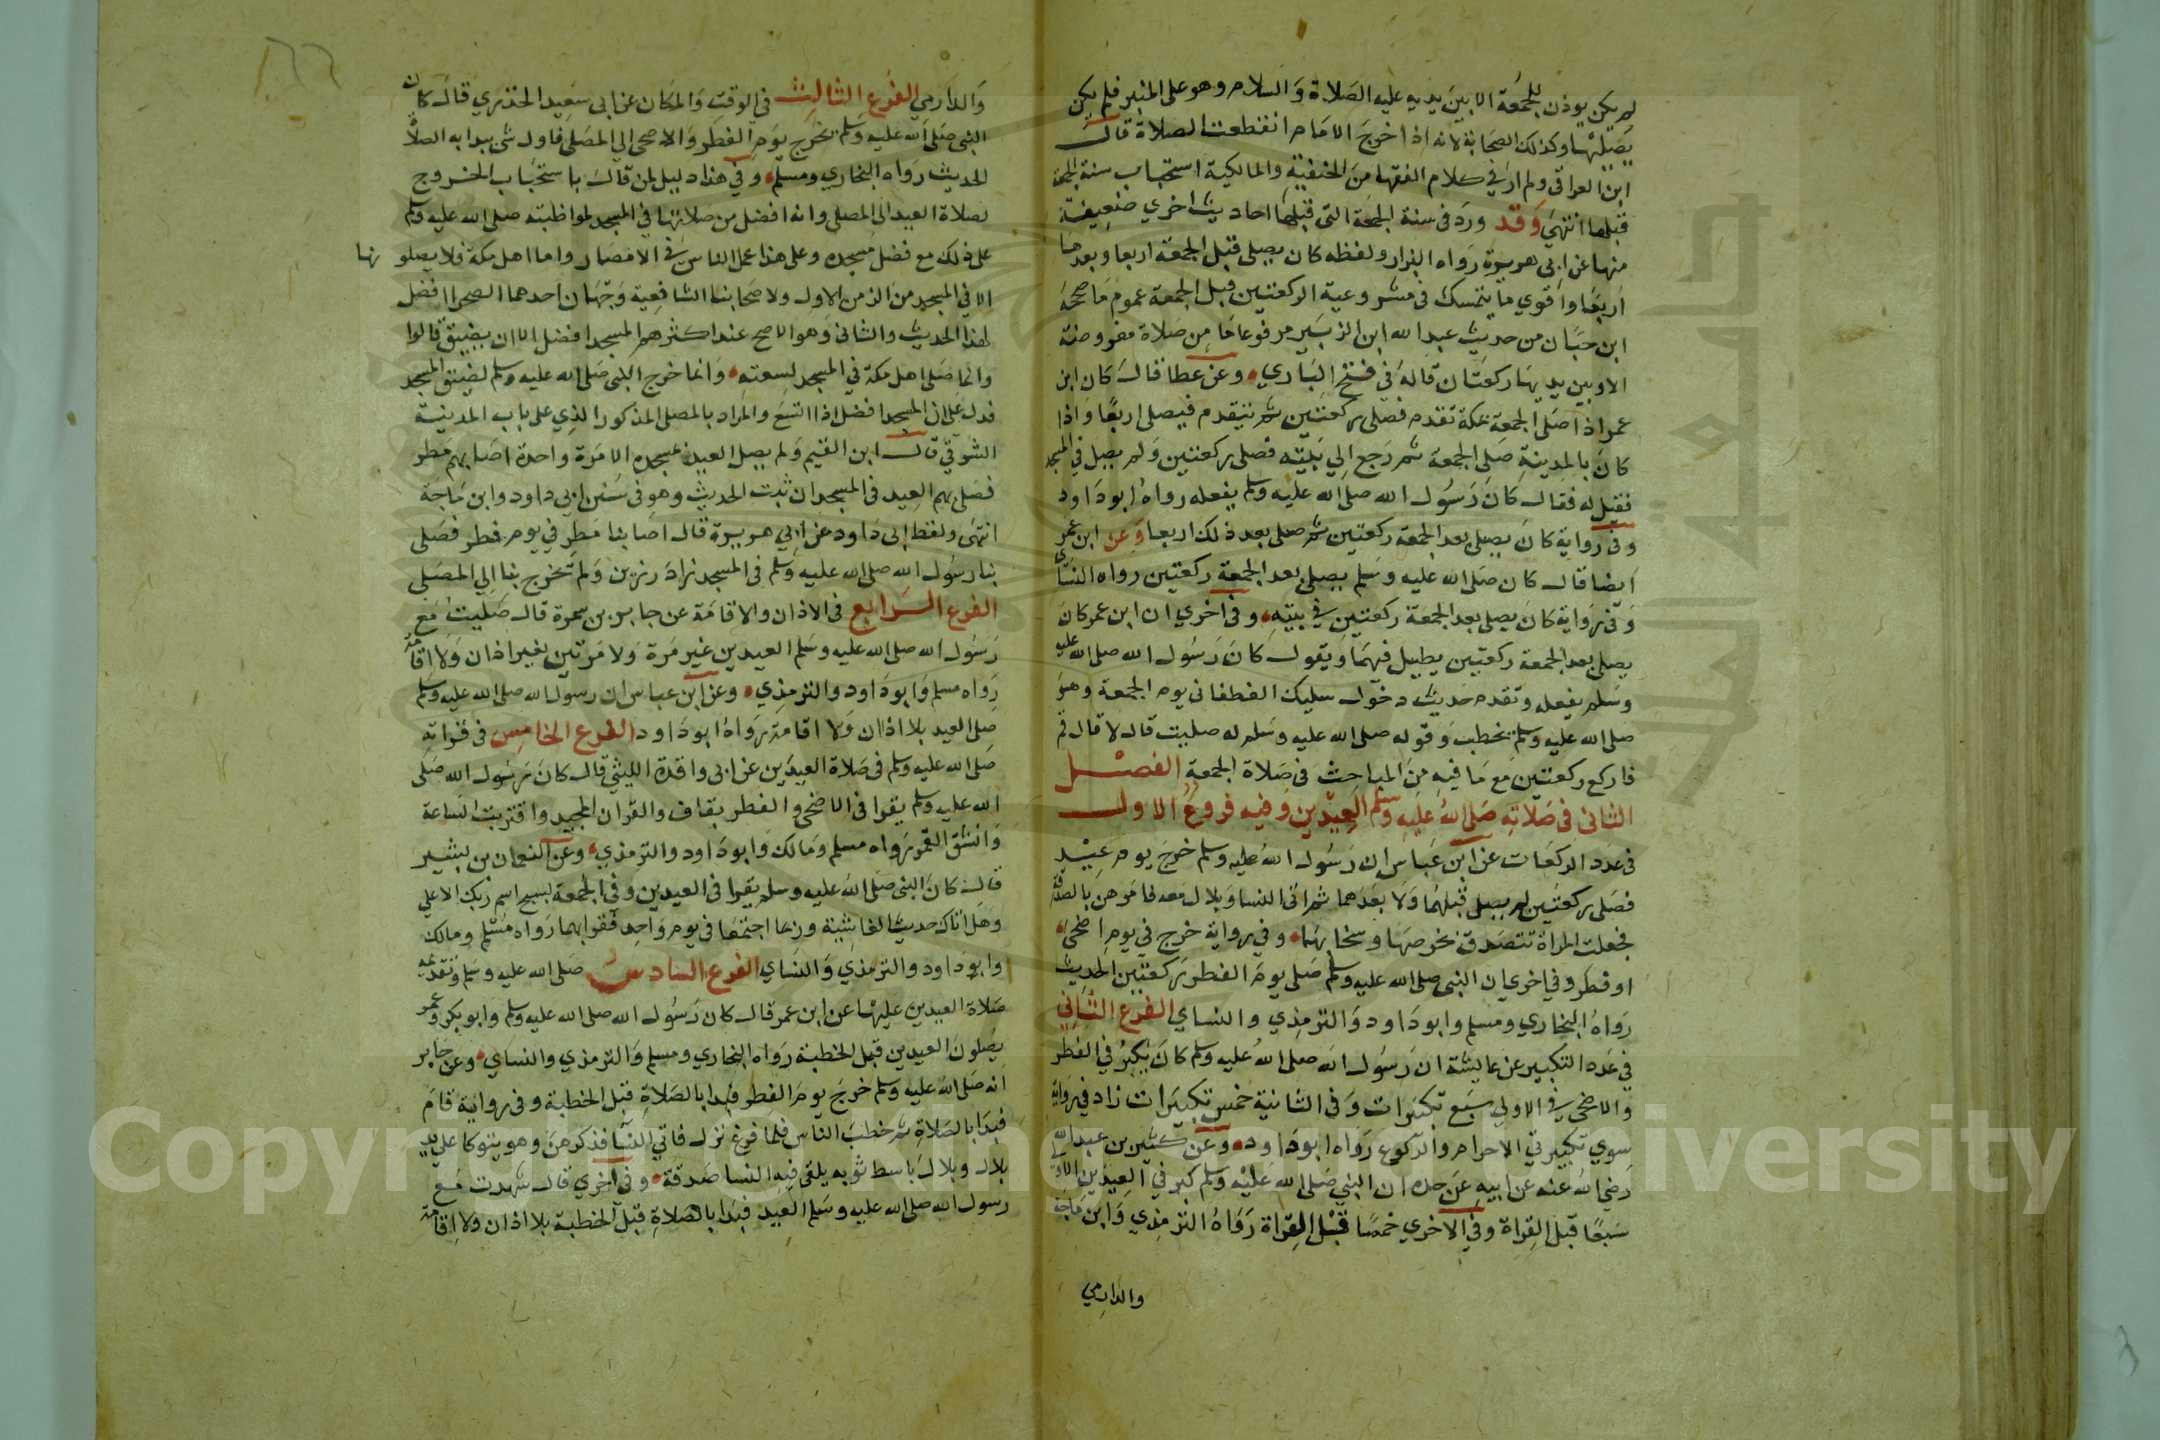 لم يكن يوذن للجمعة الا بين يديه عليه الصلاة والسلام وهو على المنبر فلم يكن
يصليها وكذلك الصحابة لانه اذا خرج الامام انقطعت الصلاة قال
ابن العراقي ولم ار في كلام الفقها من الحنفية والمالكية استحباب سنة الجمعة
قبلها انتهى وقد ورد في سنة الجمعة التي قبلها احاديث اخري ضعيفة
منها عن ابي هريرة رواه البزار ولفظه كان يصلي قبل الجمعة اربعا وبعدها
اربعا واقوي ما يتمسك في مشروعية الركعتين قبل الجمعة عموم ما صححه
ابن حبان من حديث عبد الله ابن الزبير مرفوعا ما من صلاة مفروضة
الا وبين يديها ركعتان قاله في فتح الباري وعن عطا قال كان ابن
عمر اذا صلى الجمعة بمكة تقدم فصلى ركعتين ثم يتقدم فيصلي اربعا واذا
كان بالمدينة صلى الجمعة ثم رجع الي بيته فصلى ركعتين ولم يصل في المسجد
فقيل له فقال كان رسول الله صلى الله عليه وسلم يفعله رواه ابو داود
وفي رواية كان يصلي بعد الجمعة ركعتين ثم صلى بعد ذلك اربعا وعن ابن عمر
ايضا قال كان صلى الله عليه وسلم يصلي بعد الجمعة ركعتين رواه النساي
وفي رواية كان يصلي بعد الجمعة ركعتين في بيته وفي اخري ان ابن عمر كان
يصلي بعد الجمعة ركعتين يطيل فيهما ويقول كان رسول الله صلى الله عليه
وسلم يفعله وتقدم حديث دخول سليك الغطفاني يوم الجمعة وهو
صلى الله عليه وسلم يخطب وقوله صلى الله عليه وسلم له صليت قال لا قال قم
فاركع ركعتين مع ما فيه من المباحث في صلاة الجمعة الفصل
الثاني في صلاته صلى الله عليه وسلم العيدين وفيه فروع الاول
في عدد الركعات عن ابن عباس ان رسول الله عليه وسلم خرج يوم عيد
فصلى ركعتين لم يصل قبلهما ولا بعدهما ثم اتى النسا وبلال معه فامرهن بالصدقة
فجعلت المراة تتصدق بخرصها وسخابها وفي رواية خرج في يوم اضحى
او فطر وفي اخري ان النبي صلى الله عليه وسلم صلى يوم الفطر ركعتين الحديث
رواه البخاري ومسلم وابو داود والترمذي والنساي الفرع الثاني
في عدد التكبير عن عايشة ان رسول الله صلى الله عليه وسلم كان يكبر في الفطر
والاضحى في الاولي سبع تكبيرات وفي الثانية خمس تكبيرات زاد في رواية
سوي تكبيرتي الاحرام والركوع رواه ابو داود وعن كثير بن عبد الله
رضي الله عنه عن ابيه عن جده ان النبي صلى الله عليه وسلم كبر في العيدين في الاولي
سبعا قبل القراة وفي الاخري خمسا قبل القراة رواه الترمذي وابن ماجة
والدارمي
والدارمي الفرع الثالث في الوقت والمكان عن ابي سعيد الخذري قال كان
النبي صلى الله عليه وسلم يخرج يوم الفطر والاضحى الى المصلى فاول شى يبدا به الصلاة
الحديث رواه البخاري ومسلم وفي هذا دليل لمن قال باستحباب الخروج
لصلاة العيد الى المصلى وانه افضل من صلاتها في المسجد لمواظبته صلى الله عليه وسلم
على ذلك مع فضل مسجده وعلى هذا عمل الناس في الامصار واما اهل مكة فلا يصلو نها
الا في المسجد من الزمن الاول ولاصحابنا الشافعية وجهان احدهما الصحرا افضل
لهذا الحديث والثاني وهو الاصح عند اكثرهم المسجد افضل الا ان يضيق قالوا
وانما صلى اهل مكة في المسجد لسعته وانما خرج النبي صلى الله عليه وسلم لضيق المسجد
فدل على ان المسجد افضل اذا اتسع والمراد بالمصلى المذكور الذي على باب المدينة
الشرقي قال ابن القيم ولم يصل العيد بمسجده الا مرة واحدة اصابهم مطر
فصلى بهم العيد في المسجد ان ثبت الحديث وهو في سنن ابي داود وابن ماجة
انتهى ولفظ ابي داود عن ابي هريرة قال اصابنا مطر في يوم فطر فصلى
بنا رسول الله صلى الله عليه وسلم في المسجد زاد رزين ولم يخرج بنا الي المصلى
الفرع الرابع في الاذان والاقامة عن جابر بن سمرة قال صليت مع
رسول الله صلى الله عليه وسلم العيدين غير مرة ولا مرتين بغير اذان ولا اقامة
رواه مسلم وابو داود والترمذي وعن ابن عباس ان رسول الله صلى الله عليه وسلم
صلى العيد بلا اذان ولا اقامة رواه ابو داود الفرع الخامس في قراته
صلى الله عليه وسلم في صلاة العيدين عن ابي واقدة الليثي قال كان رسول الله صلى
الله عليه وسلم يقرا في الاضحى والفطر بقاف والقران المجيد واقتربت الساعة
وانشق القمر رواه مسلم ومالك وابو داود والترمذي وعن النعمان بن بشير
قال كان النبي صلى الله عليه وسلم يقرا في العيدين وفي الجمعة بسبح اسم ربك الاعلي
وهل اتاك حديث الغاشية وربما اجتمعا في يوم واحد فقرا بهما رواه مسلم ومالك
وابو داود والترمذي والنساي الفرع السادس صلى الله عليه وسلم وتقدمه
صلاة العيدين عليها عن ابن عمر قال كان رسول الله صلى الله عليه وسلم وابو بكر وعمر
يصلون العيدين قبل الخطبة رواه البخاري ومسلم والترمذي والنساي وعن جابر
انه صلى الله عليه وسلم خرج يوم الفطر فبدا بالصلاة قبل الخطبة وفي رواية قام
فبدا بالصلاة ثم خطب الناس فلما فرغ نزل فاتي النسا فذكرهن وهو يتوكا على يد
بلال وبلال باسط ثوبه يلقي فيه النسا صدقة وفي اخري قال شهدت مع
رسول الله صلى الله عليه وسلم العيد فبدا بالصلاة قبل الخطبة بلا اذان ولا اقامة
Copyright © King Saud University